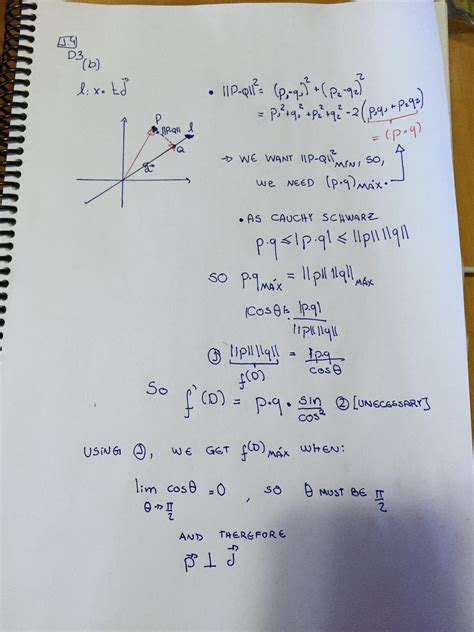 1.4
D3
(b)
l: x = t d⃗
P
||P-Q||
l
Q
d⃗
• ||P-Q||² = (p₁-q₁)² + (p₂-q₂)²
= p₁²+q₁²+p₂²+q₂² - 2(p₁q₁+p₂q₂)
= (p•q)
→ WE WANT ||P-Q||² MÍN, SO,
WE NEED (p•q) MÁX.
• AS CAUCHY SCHWARZ
p.q ≤ |p.q| ≤ ||p|| ||q||
SO p.q MÁX = ||p|| ||q|| MÁX
|cosθ| = |p.q| / ||p|| ||q||
① ||p|| ||q|| = |p.q| / cosθ
f(D)
SO f'(D) = p.q • sin / cos² ② [UNECESSARY]
USING ①, WE GET f(D) MÁX WHEN:
lim cosθ = 0 , SO θ MUST BE π/2
θ→π/2
AND THEREFORE
p⃗ ⊥ d⃗